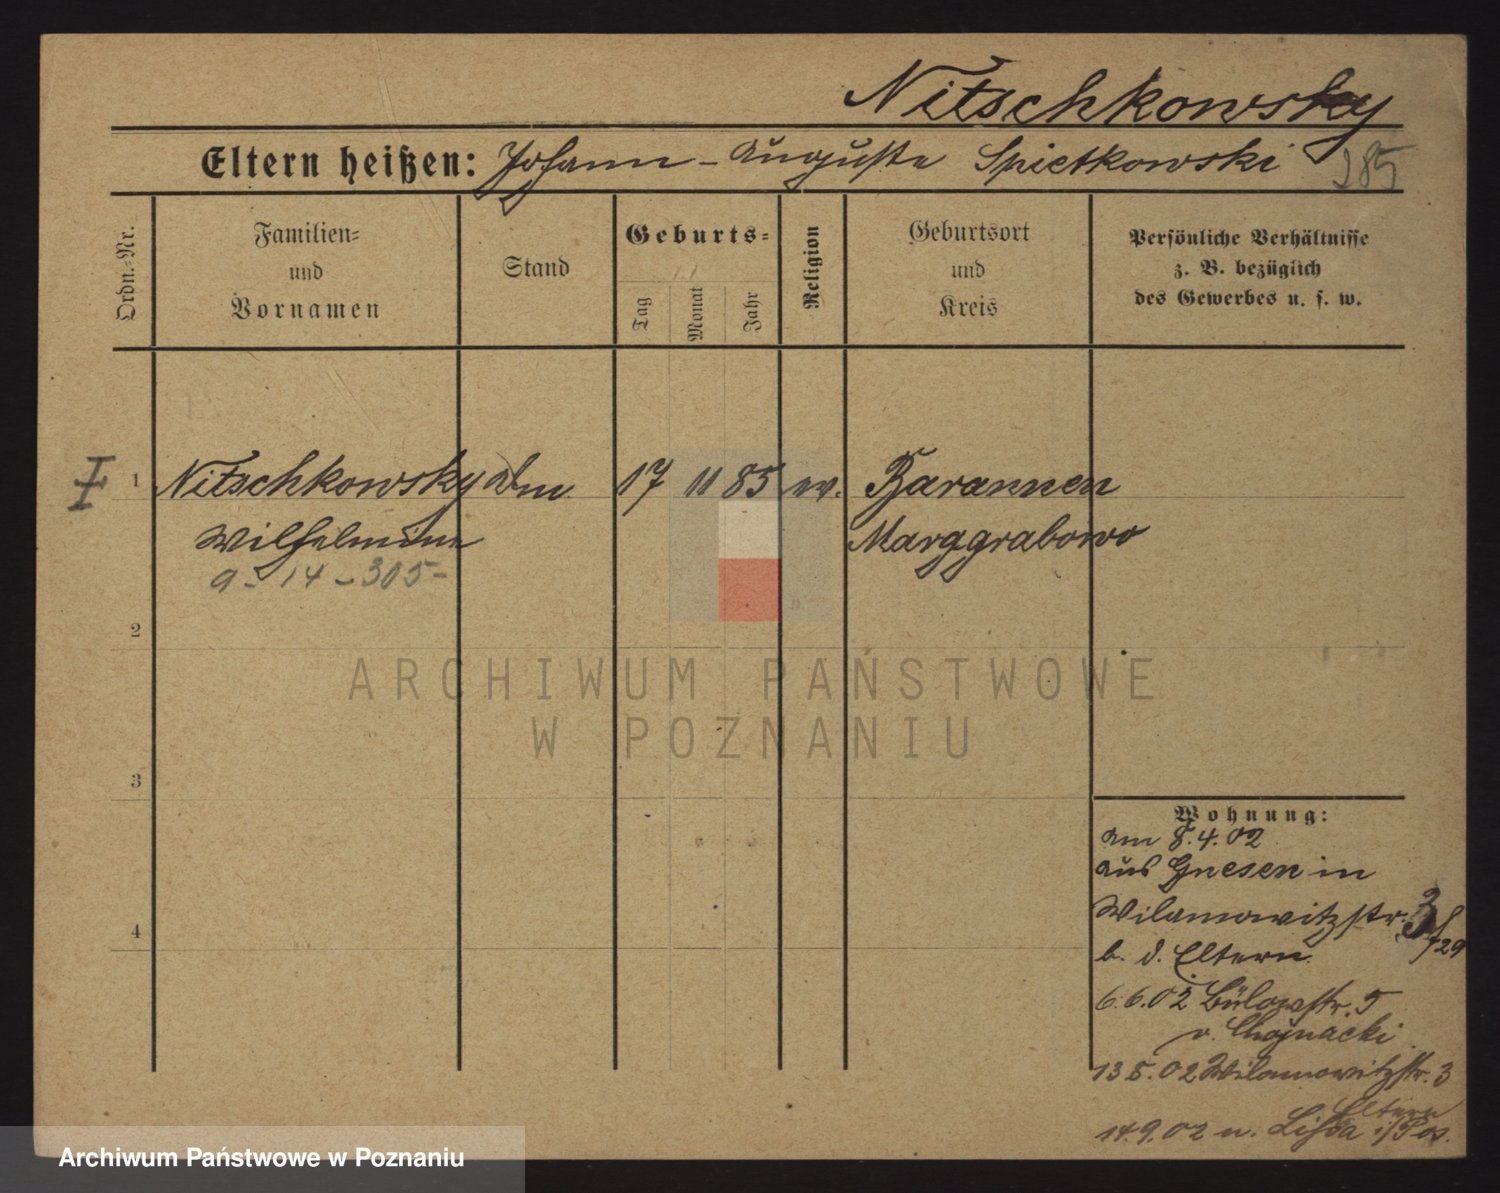 Nitschkowsky
Eltern heißen: Johann - Auguste Spietkowski 285
Ordn.-Nr.
Familien-
und
Vornamen
Stand
Geburts-
Tag
Monat
Jahr
Religion
Geburtsort
und
Kreis
Persönliche Verhältnisse
z. B. bezüglich
des Gewerbes u. s. w.
1 Nitschkowsky 17 11 85 ev. Barannen
Wilhelmine Marggrabowo
a - 14 - 305 -
2
3
4
Wohnung:
am 8.4.02
aus Gnesen in
Wilamowitzstr. 3
b. d. Eltern. 129
6.6.02 Bülowstr. 5
v. Chojnacki
13 8.02 Wilamowitzstr. 3
Eltern
14.9.02 n. Lissa i/Pos.
ARCHIWUM PAŃSTWOWE
W POZNANIU
Archiwum Państwowe w Poznaniu